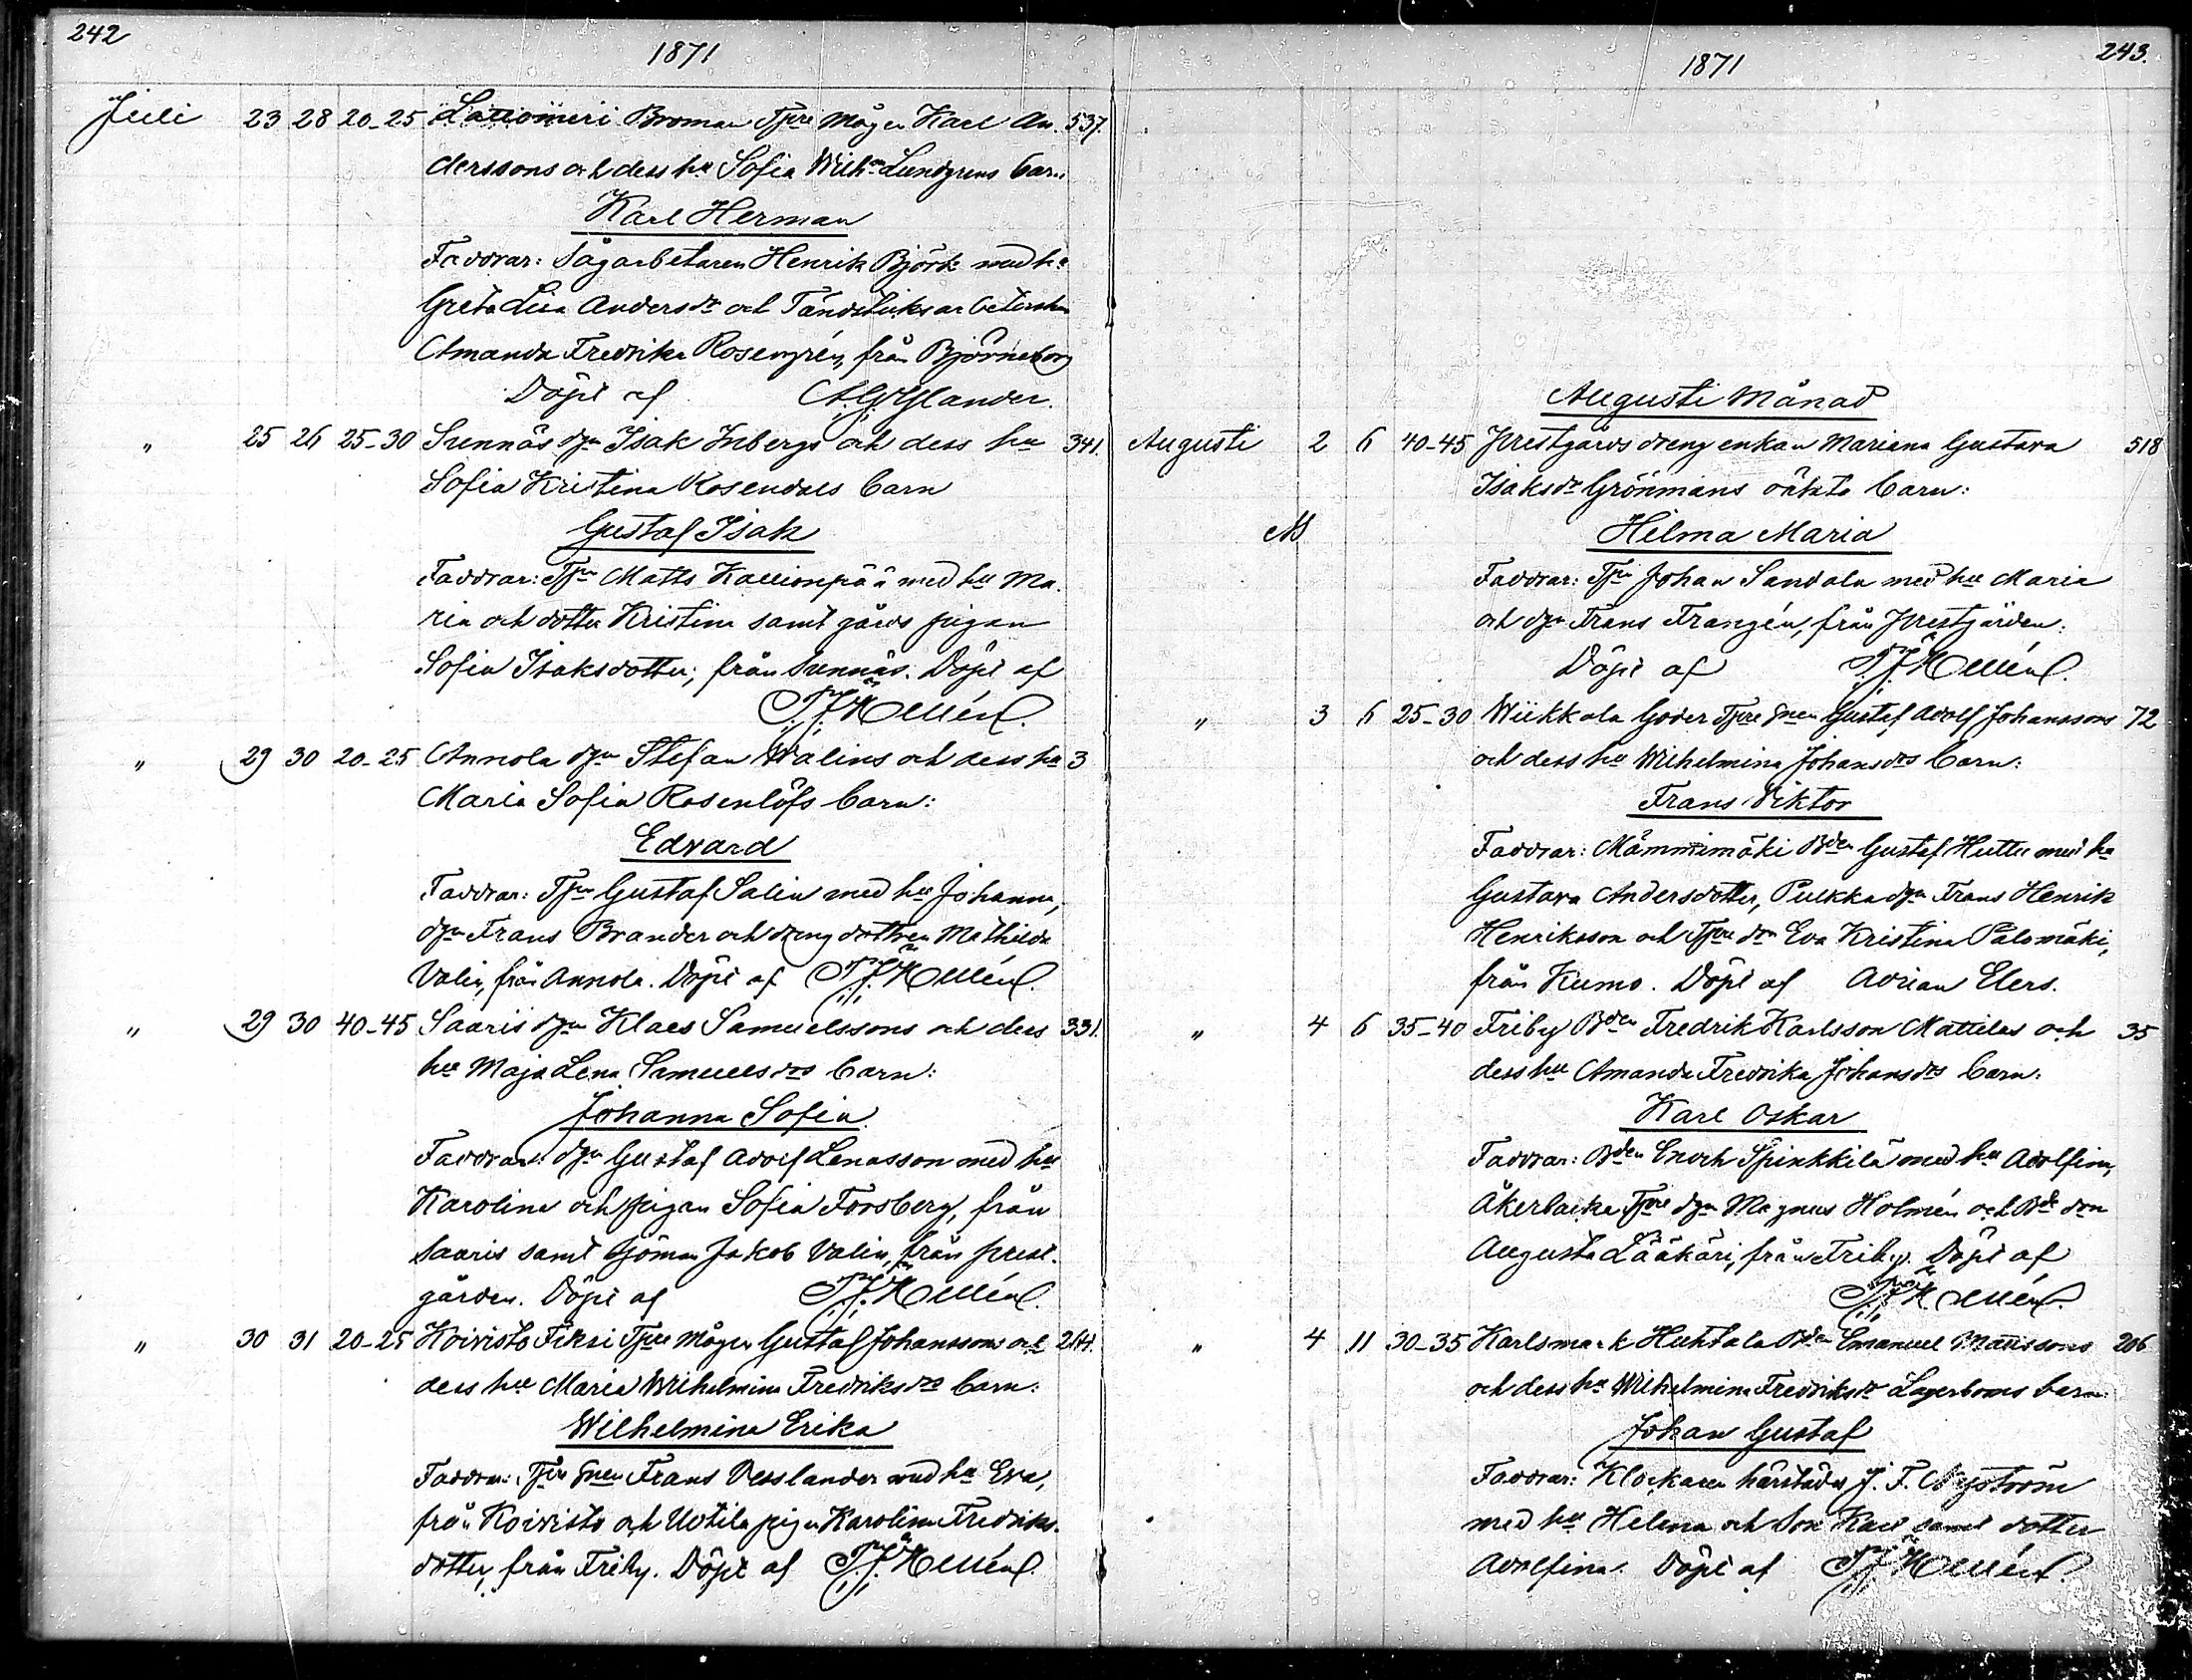 242
1871
Juli 23 28 20-25 Lattomeri Broman Tpre Mågen Karl An- 537.
derssons och dess hu Sofia Wilhna Lundgrens barn
Karl Herman
Faddrar: Sågarbetaren Henrik Björk med hu
Greta Lisa Andersdr och Tändsticksarbeterskan
Amanda Fredrika Rosengrén, från Björneborg
Döpt af A.G. Gylander.
" 25 26 25-30 Sunnäs dgn Isak Inbergs och dess hu 341.
Sofia Kristina Rosendals barn
Gustaf Isak
Faddrar: Tpn Matts Kallionpää med hu Ma-
ria och dotter Kristina samt gårds pigan
Sofia Isaksdotter, från Sunnäs. Döpt af
" 29 30 20-25 Annola dgn Stefan Walins och dess hu 3
Maria Sofia Rosenlöfs barn:
Edvard
Faddrar: Tpn Gustaf Salin med hu Johanna,
dgn Frans Brander och dreng dottren Mathilda
Valin, från Annola. Döpt af
" 29 30 40-45 Saaris dgn Klaes Samuelssons och dess 331.
hu Maja Lena Samuelsdrs barn:
Johanna Sofia
Faddrar: dgn Gustaf Adolf Lenasson med hu
Karolina och pigan Sofia Forsberg, från
Saaris samt Sjöman Jakob Valin, från prest-
gården. Döpt af
" 30 31 20-25 Koivisto Fiksi Tpre Mågen Gustaf Johanssons och 264.
dess hu Maria Wilhelmina Fredriksdrs barn:
Wilhelmina Erika
Faddrar: Tpre Snen Frans Wesslander med hu Eva,
från Koivisto och Uotila pigan Karolina Fredriks-
dotter, från Friby. Döpt af
243.
1871
Augusti Månad
Augusti 2 6 40-45 Prestgårds dreng enkan Mariana Gustava 518
Isaksdr Grönmans oäkta barn:
M Hilma Maria
Faddrar: Tpn Johan Sandala med hu Maria
och dgn Frans Frangén, från Prestgården.
Döpt af
" 3 6 25-30 Wiikkala Goder Tpre Snen Gustaf Adolf Johanssons 72
och dess hu Wilhelmina Johansdrs barn:
Frans Viktor
Faddrar: Mämmimäki Bden Gustaf Huttu med hu
Gustava Andersdotter, Pulkka dgn Frans Henrik
Henriksson och Tpre drn Eva Kristina Palomäki,
från Kumo. Döpt af Adrian Elers.
" 4 6 35-40 Friby Bden Fredrik Karlsson Mattilas och 35
dess hu Amanda Fredrika Johansdrs barn:
Karl Oskar
Faddrar: Bden Enoch Spinkkilä med hu Adolfina,
Åkerbacka Tpre dgn Magnus Holmén och Bde drn
Augusta Lääkäri, från Friby. Döpt af
" 4 11 30-35 Karlsmark Huhtala Bden Emanuel Månssons 206
och dess hu Wilhelmina Fredriksdr Lagerboms barn:
Johan Gustaf
Faddrar: Klockaren härstädes J. F. Nyström
med hu Helena och Son Karl samt dotter
Adolfina. Döpt af